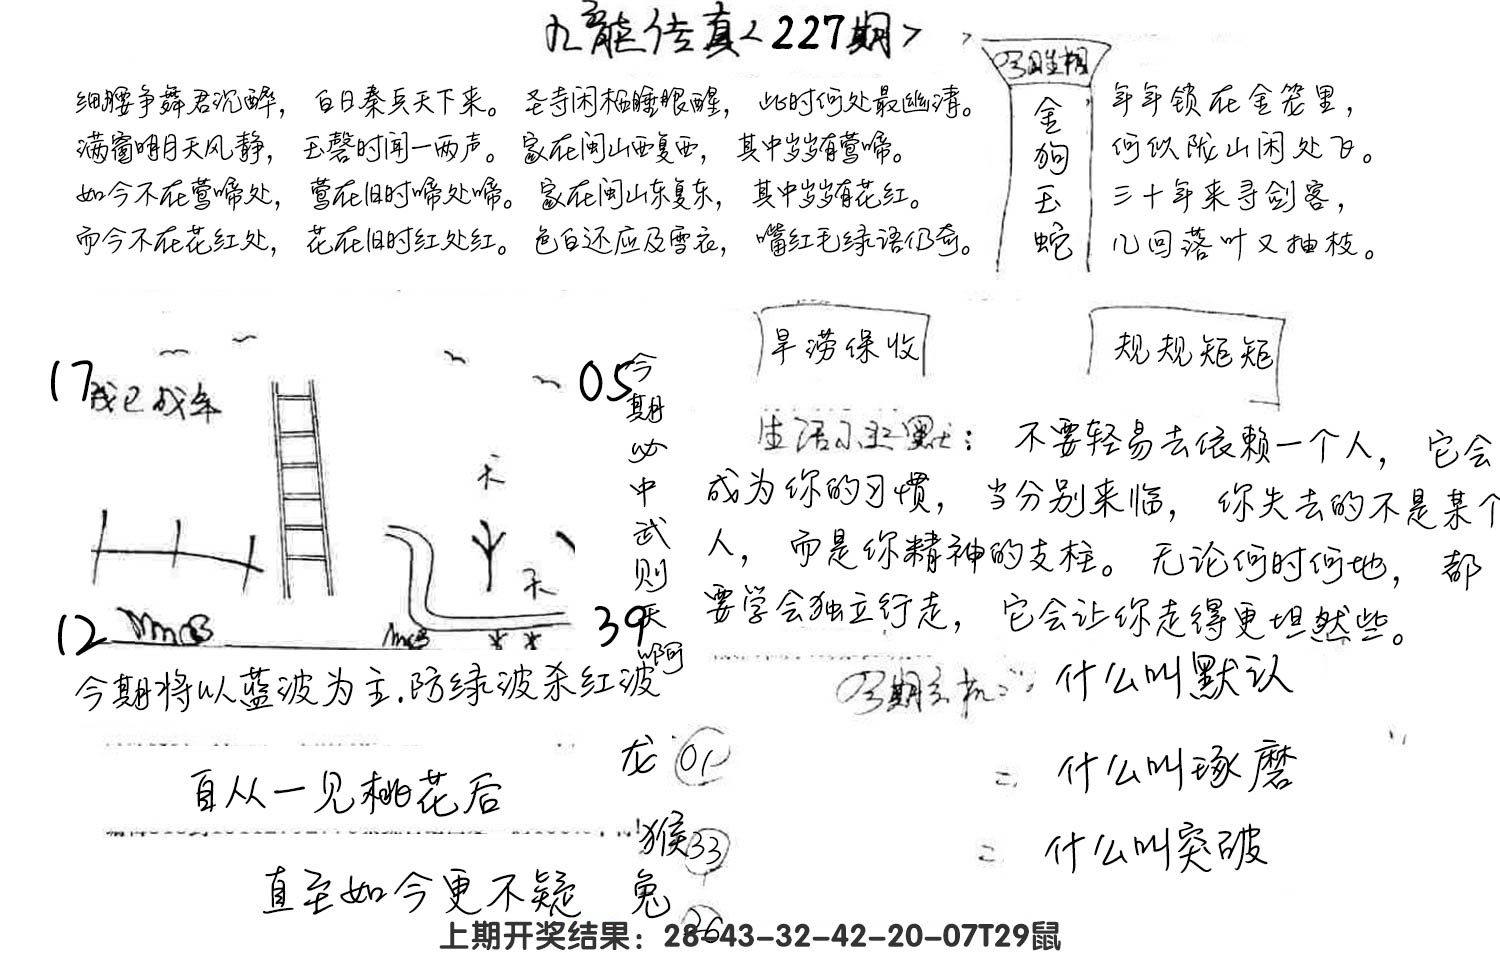 九龙传真<227期>
细腰争舞君沉醉，白日秦兵天下来。圣寺闲栖睡眼醒，此时何处最幽清。
满窗明月天风静，玉磬时闻一两声。家在闽山西复西，其中岁岁有莺啼。
如今不在莺啼处，莺在旧时啼处啼。家在闽山东复东，其中岁岁有花红。
而今不在花红处，花在旧时红处红。色白还应及雪衣，嘴红毛绿语仍奇。
金狗玉蛇
年年锁在金笼里，
何似陇山闲处飞。
三十年来寻剑客，
几回落叶又抽枝。
旱涝保收
规规矩矩
17
05
12
39
今期必中武则天啊
今期将以蓝波为主.防绿波杀红波
不要轻易去依赖一个人，它会
成为你的习惯，当分别来临，你失去的不是某个
人，而是你精神的支柱。无论何时何地，都
要学会独立行走，它会让你走得更坦然些。
什么叫默认
什么叫琢磨
什么叫突破
自从一见桃花后
直至如今更不疑
龙 01
猴 33
兔 26
上期开奖结果：28-43-32-42-20-07T29鼠